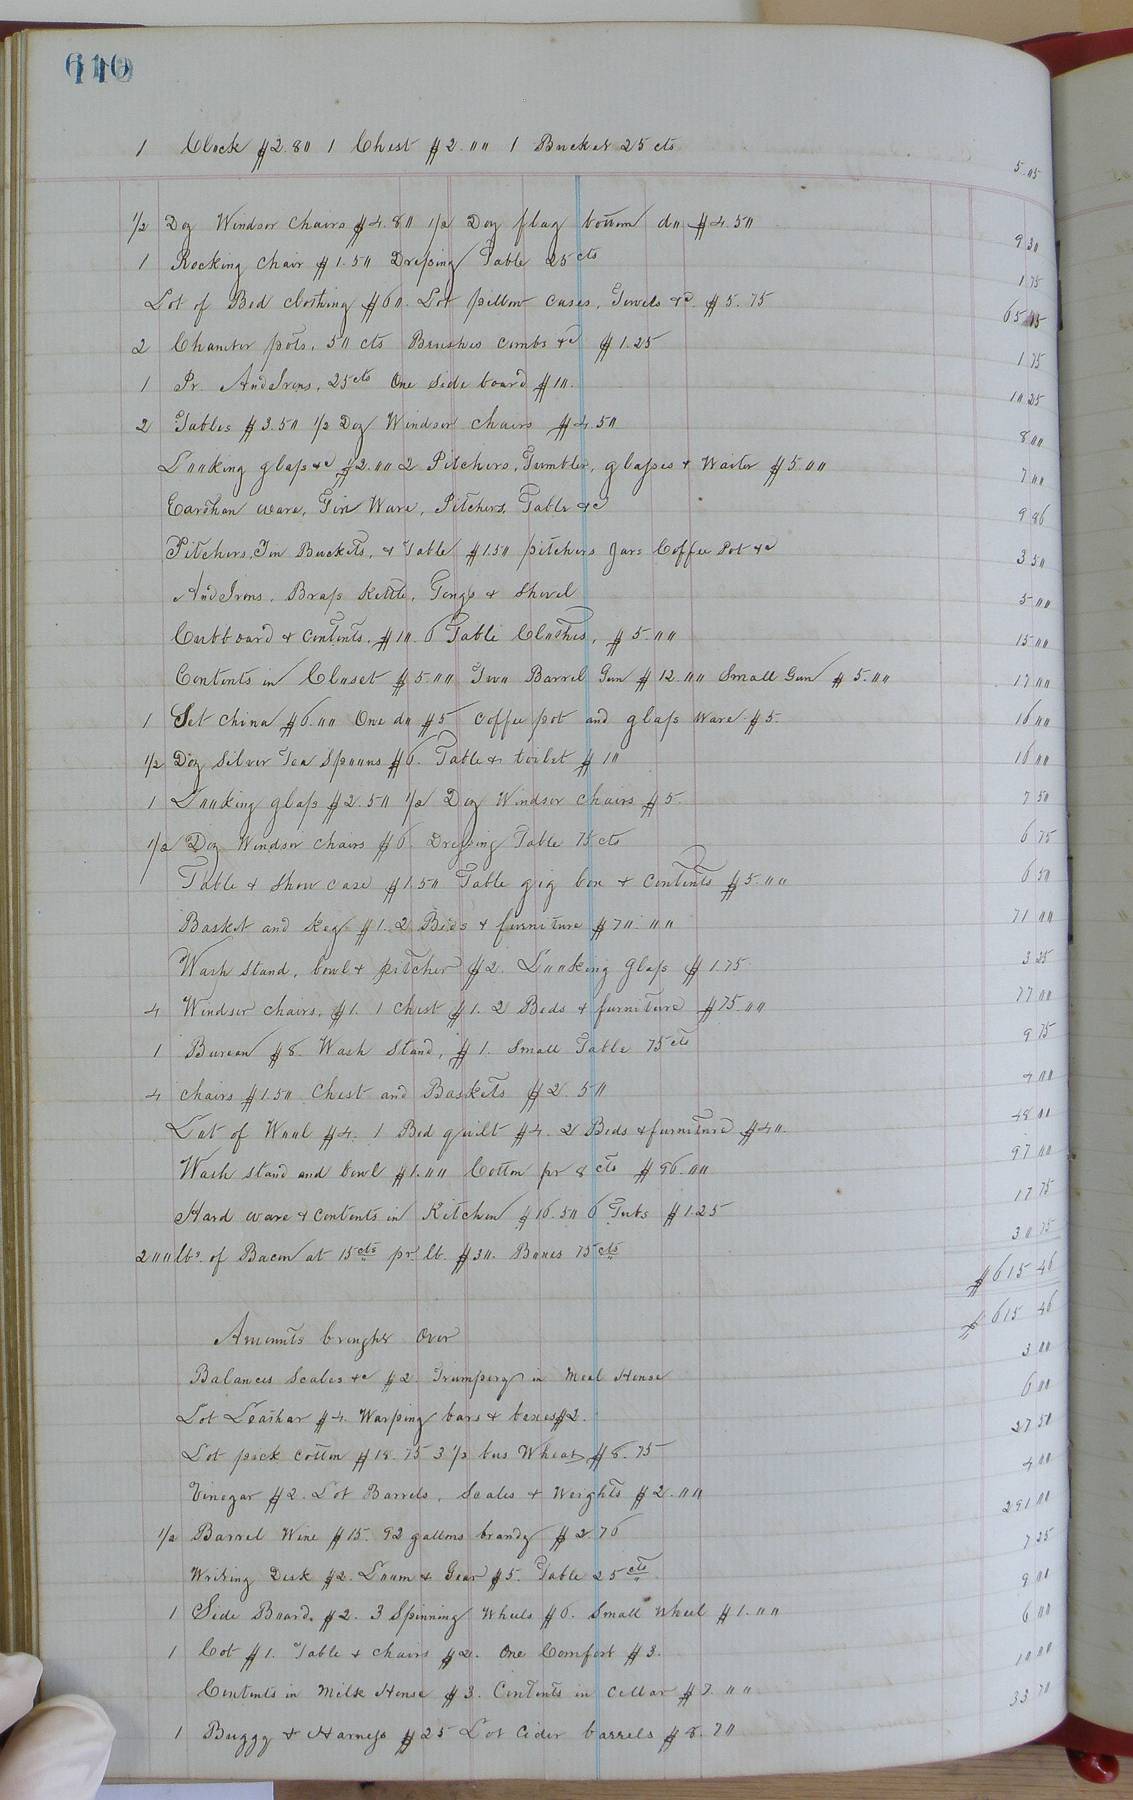 610
1 Clock $2.80 1 Chest $2.00 1 Bucket 25 cts 5.05
1/2 Doz Windsor chairs $4.80 1/2 Doz flag bottom do $4.50 9 30
1 Rocking chair $1.50 Dressing Table 25 cts 1 75
Lot of Bed clothing $60. Lot pillow cases, Towels &c. $5.75 65 75
2 Chamber pots, 50 cts Brushes combs &c $1.25 1 75
1 Pr. AndIrons, 25 cts One Side board $10. 10 25
2 Tables $3.50 1/2 Doz Windsor chairs $4.50 8 00
Looking glass &c $2.00 2 Pitchers, Tumbler, glasses & Waiter $5.00 7 00
Earthan ware, Tin Ware, Pitchers, Table &c 9 86
Pitchers, Tin Buckets, & Table $1.50 pitchers Jars Coffee Pot &c 3 50
AndIrons, Brass Kettle, Tongs & Shovel 5 00
Cubboard & contents, $10. 6 Table Cloathes, $5.00 15 00
Contents in Closet $5.00 Two Barrel Gun $12.00 Small Gun $5.00 17 00
1 Set china $6.00 One do $5 coffee pot and glass Ware $5. 16 00
1/2 Doz Silver Tea Spoons $6. Table & toilet $10 16 00
1 Looking glass $2.50 1/2 Doz Windsor chairs $5. 7 50
1/2 Doz Windsor chairs $6. Dressing Table 75 cts 6 75
Table & Show case $1.50 Table gig box & contents $5.00 6 50
Basket and Keg $1. 2 Beds & furniture $70.00 71 00
Wash Stand, bowl & pitcher $2. Looking Glass $1.75 3 25
4 Windsor chairs, $1. 1 chest $1. 2 Beds & furniture $75.00 77 00
1 Bureau $8. Wash Stand, $1. Small Table 75 cts 9 75
4 chairs $1.50 Chest and Baskets $2.50 4 00
Lot of Wool $4. 1 Bed quilt $4. 2 Beds & furniture $40. 48 00
Wash stand and bowl $1.00 Cotton pr 8 cts $96.00 97 00
Hard ware & contents in Kitchen $16.50 6 Tubs $1.25 17 75
200 lbs. of Bacon at 15 cts pr. lb. $30. Boxes 75 cts 30 75
$615 46
Amounts brought Over $615 46
Balances Scales &c $2 Trumpery in Meal House 3 00
Lot Leathar $4. Warping bars & boxes $2. 6 00
Lot pick cotton $18.75 3 1/2 bus Wheat $8.75 27 50
Vinegar $2. Lot Barrels, Scales & Weights $2.00 4 00
1/2 Barrel Wine $15. 92 gallons brandy $276 291 00
Writing Desk $2. Loom & Gear $5. Table 25 cts. 7 25
1 Side Board, $2. 3 Spinning Wheels $6. Small Wheel $1.00 9 00
1 Cot $1. Table & chairs $2. One Comfort $3. 6 00
Contents in Milk House $3. Contents in cellar $7.00 10 00
1 Buggy & Harness $25 Lot Cider barrels $8.70 33 70